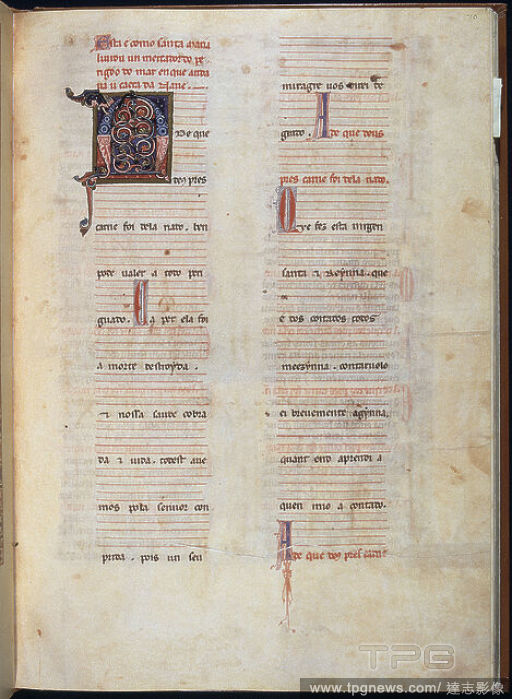 Esta e como santa maria
livrou un mercador do pe
rigoo do mar en que anda
na u caera da Nave.
A De que
deus pres
carne foi dela nado. ben
pode valer a todo peri
guado. Ca per ela foi
a morte destroyda.
τ nossa saude cobra
da τ vida. todest ave
mos pola sennor con
prida. pois un seu
miragre vos direi de
grado. A de que deus
pres carne foi dela nado.
Oye fez esta virgen
santa τ Reynna. que
e dos coitados todos
meezynna. contarvolo
ei brevemente agynna,
quant end aprendi a
quen mio a contado.
A de que deus pres carne
TPG
www.tpgnews.com/ 達志影像